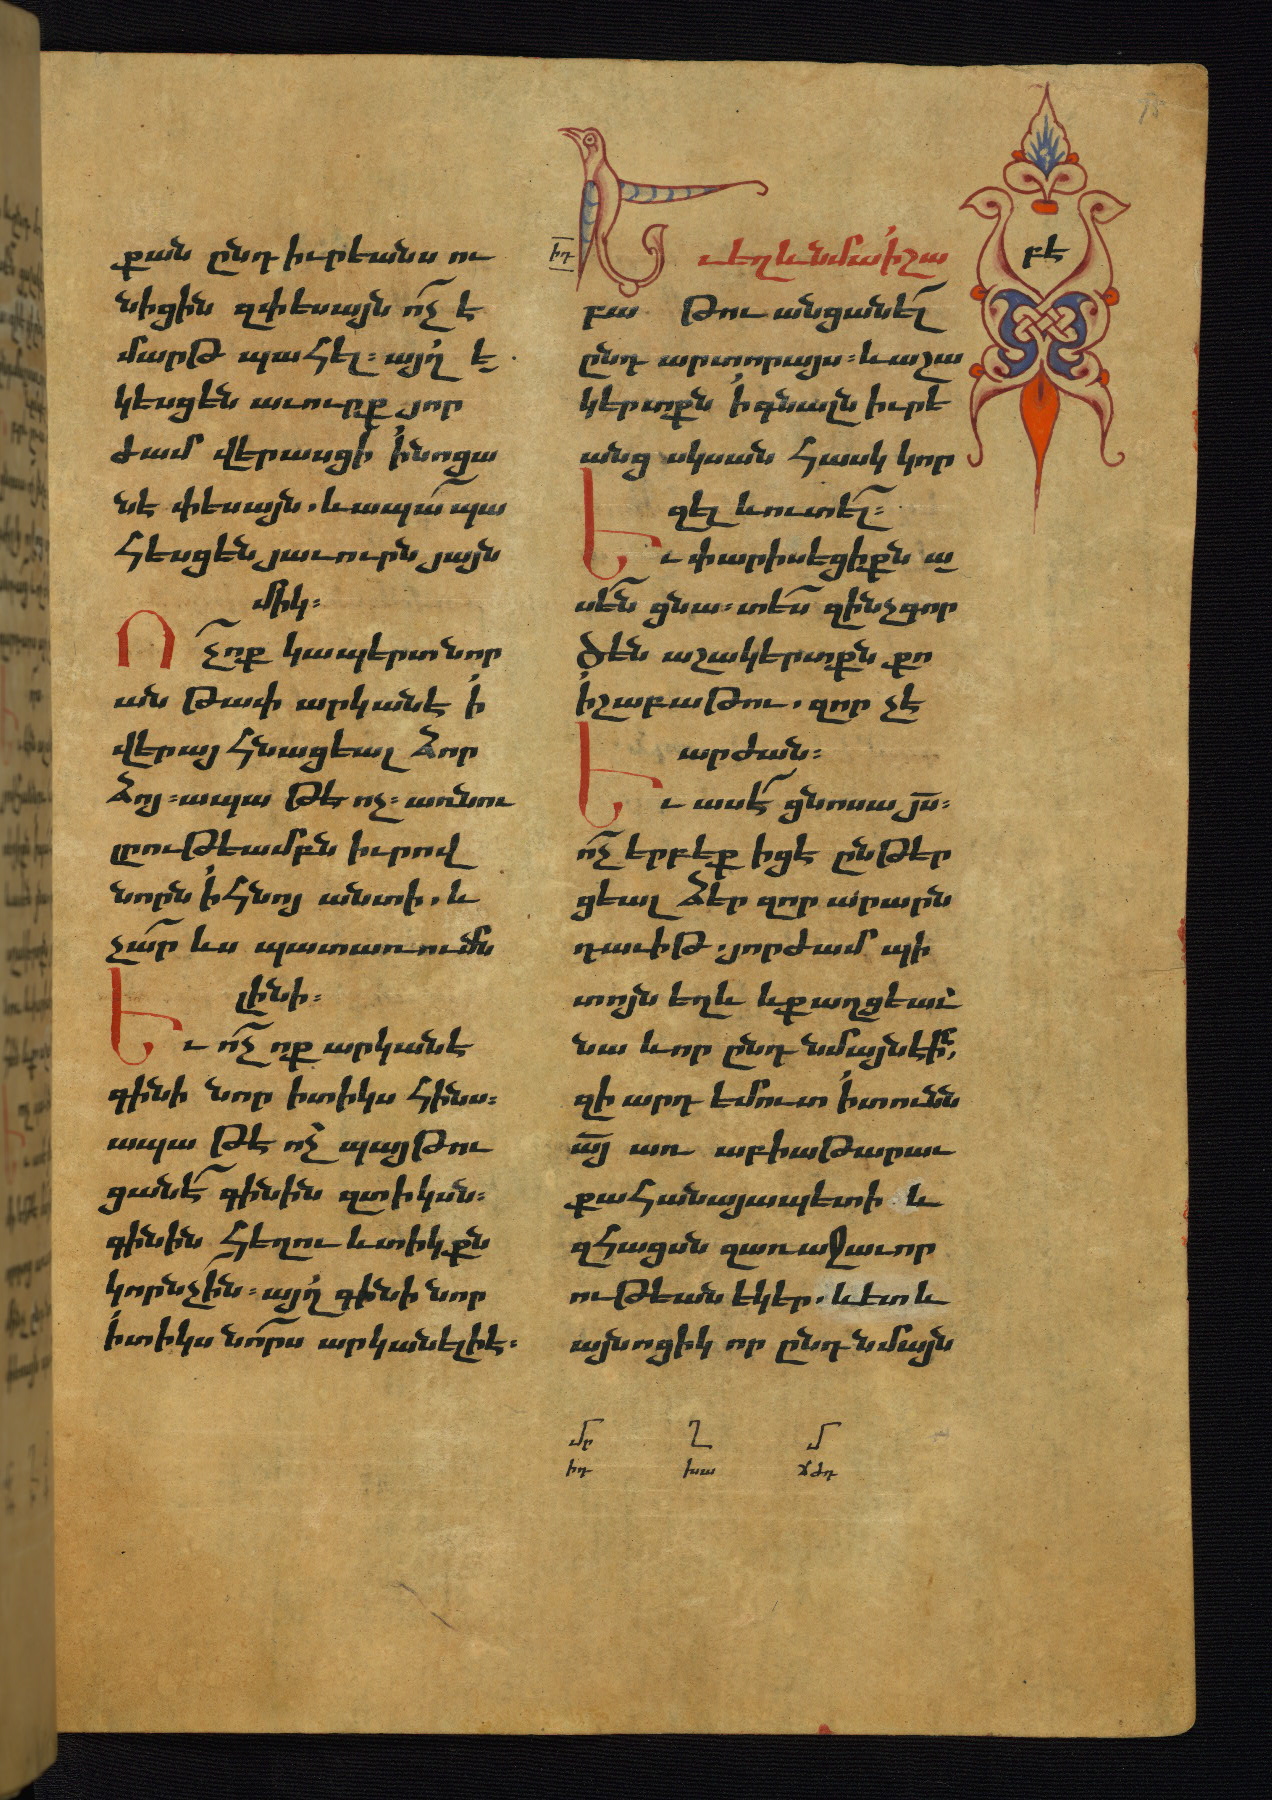 քան ընդ իւրեանս ու
նիցին զփեսայն ոչ է
մարթ պահել։ այղ ե
կեսցեն աւուրք յոր
ժամ վերասցի ինոցա
նէ փեսայն. և ապա պա
հեսցեն յաւուրն յայն
միկ։
Ո չոք կապերտ նոր
ան թափ արկանէ ի
վերայ հնացեալ ձոր
ձոյ։ ապա թե ոչ։ առնու
լրութեամբն իւրով
նորն իհնոյ անտի. և
չար ևս պատառումն
լինի։
Ե ւ ոչ ոք արկանէ
գինի նոր իտիկս հինս։
ապա թե ոչ պայթու
ցանէ գինին զտիկսն։
գինին հեղու և տիկքն
կորնչին։ այղ գինի նոր
իտիկս նորս արկանելիէ։
իդ
Ե ւ եղև նմա իշա
բա թու անցանել
ընդ արտորայս։ և աշա
կերտքն ի գնալն իւրե
անց սկսան հասկ կոր
զել և ուտել։
Ե ւ փարիսեցիքն ա
սեն ցնա։ տես զինչ գոր
ծեն աշակերտքն քո
ի շաբաթու. զոր չէ
արժան։
Ե ւ ասէ ցնոսա յս։
ոչ երբեք իցէ ընթեր
ցեալ ձեր զոր արարն
դաւիթ. յորժամ պի
տոյն եղև և քաղցեաւ
նա և որ ընդ նմայն էին,
զի արդ եմուտ ի տունն
այ առ աբիաթարաւ
քահանայապետի և
զհացսն զառաջաւոր
ութեան եկեր. և ետ և
այնոցիկ որ ընդ նմայն
բե
մր Ղ մ
իդ խա ճժդ